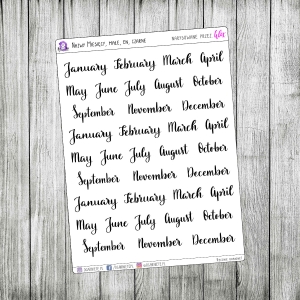 January February March April
May June July August October
September November December
January February March April
May June July August October
September November December
January February March April
May June July August October
September November December